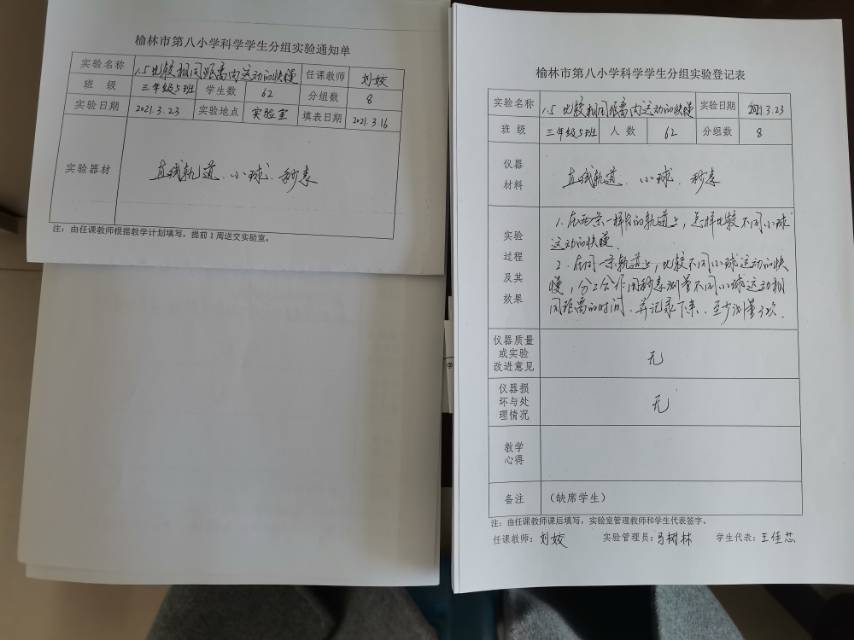 榆林市第八小学科学学生分组实验通知单
实验名称 1.5 比较相同距离内运动的快慢 任课教师 刘姣
班 级 三年级5班 学生数 62 分组数 8
实验日期 2021.3.23 实验地点 实验室 填表日期 2021.3.16
实验器材 直线轨道、小球、秒表
注：由任课教师根据教学计划填写，提前1周送交实验室。
榆林市第八小学科学学生分组实验登记表
实验名称 1.5 比较相同距离内运动的快慢 实验日期 2021.3.23
班 级 三年级5班 人 数 62 分组数 8
仪器
材料
直线轨道、小球、秒表
实验
过程
及其
效果
1. 在两条一样长的轨道上，怎样比较不同小球
运动的快慢。
2. 在同一条轨道上，比较不同小球运动的快
慢，分工合作用秒表测量不同小球运动相
同距离的时间，并记录下来，至少测量3次。
仪器质量
或实验
改进意见
无
仪器损
坏与处
理情况
无
教学
心得
备注 （缺席学生）
注：由任课教师课后填写，实验室管理教师和学生代表签字。
任课教师：刘姣 实验管理员：马树林 学生代表：王佳芯